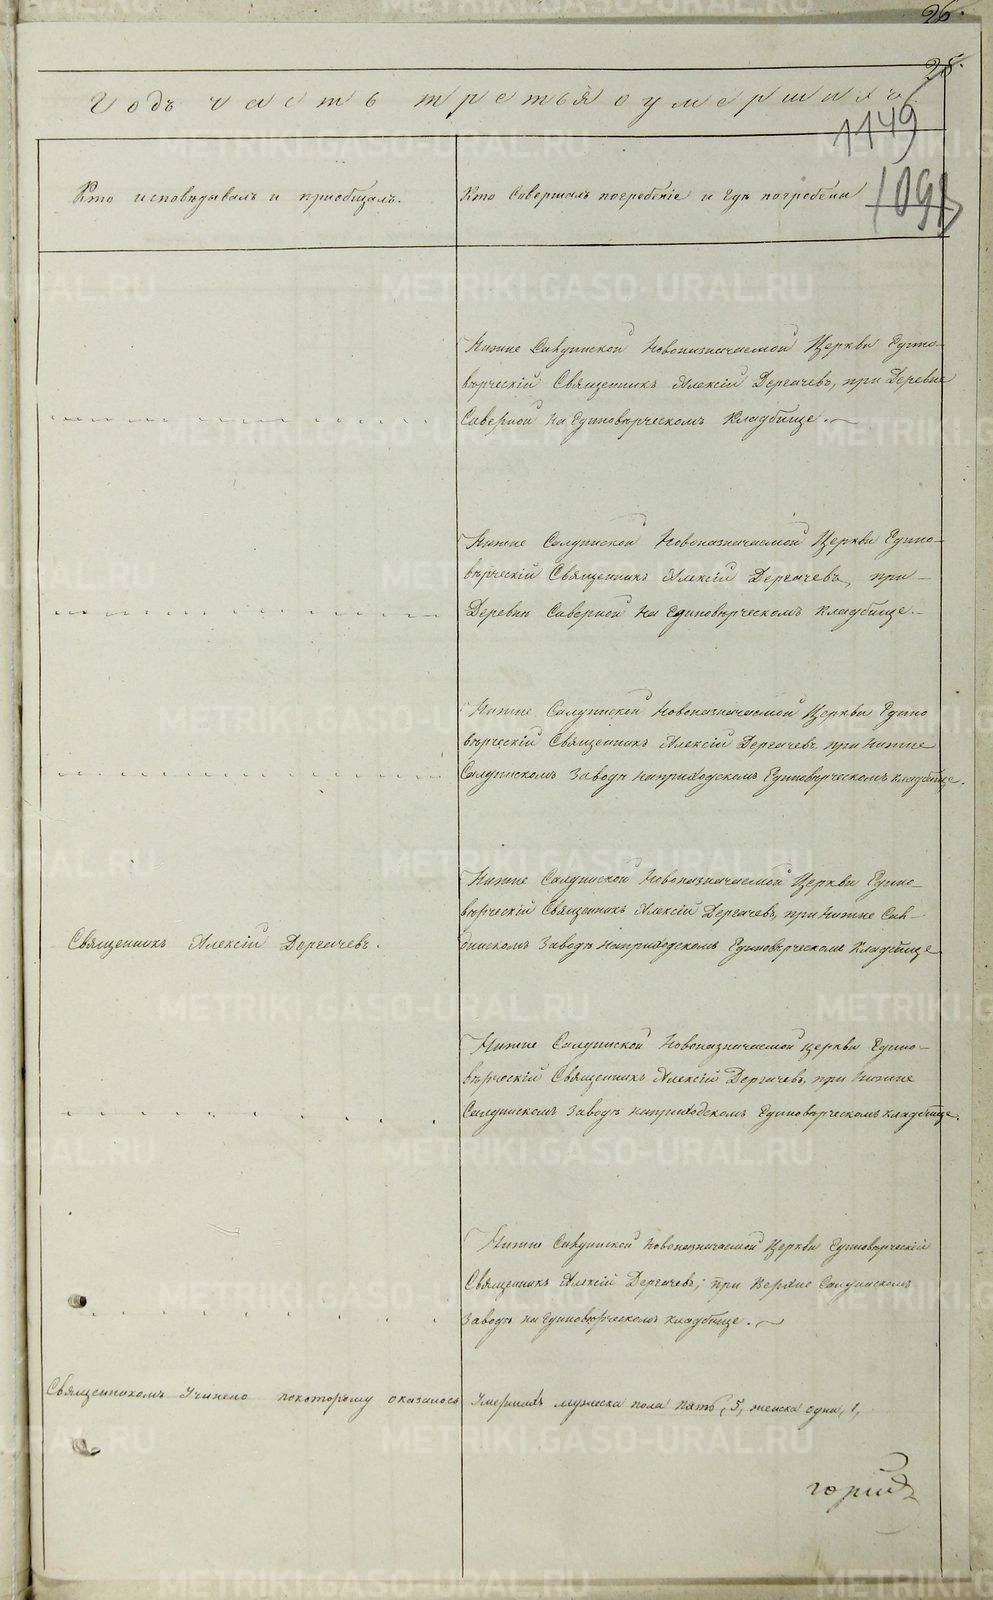 26.
28.
Годъ часть третья о умершихъ
1149
1091
Кто исповѣдывалъ и приобщалъ.
Кто Совершалъ погребеніе и Гдѣ погребены
Нижне Салдинской Новоназначаемой Церкви Едино-
вѣрческій Священникъ Алексій Дергачевъ, при Деревне
Северной На Единовѣрческомъ Кладбище.
Нижне Салдинской Новоназначаемой Церкви Едино-
вѣрческій Священникъ Алексій Дергачевъ, при
Деревни Северной На Единовѣрческомъ Кладбище.
Нижне Салдинской Новоназначаемой Церкви Едино
вѣрческій Священникъ Алексій Дергачевъ при Нижне
Салдинскомъ Заводѣ наприходскомъ Единовѣрческомъ кладбище.
Священникъ Алексій Дергачевъ.
Нижне Салдинской Новоназначаемой Церкви Едино-
вѣрческій Священникъ Алексій Дергачевъ, при Нижне Сал-
динскомъ Заводѣ наприходскомъ Единовѣрческомъ Кладбище
Нижне Салдинской Новоназначаемой Церкви Едино-
вѣрческій Священникъ Алексій Дергачевъ, при Нижне
Салдинскомъ Заводѣ наприходскомъ Единовѣрческомъ кладбище.
Нижне Салдинской Новоназначаемой Церкви Единовѣрческій
Священникъ Алексій Дергачевъ; при Верхне Салдинскомъ
Заводѣ на Единовѣрческомъ кладбище.
Священникомъ Учинено покоторому оказалось
Умершихъ мужеска пола пять, 5, женска одна, 1,
горій
METRIKI.GASO-URAL.RU